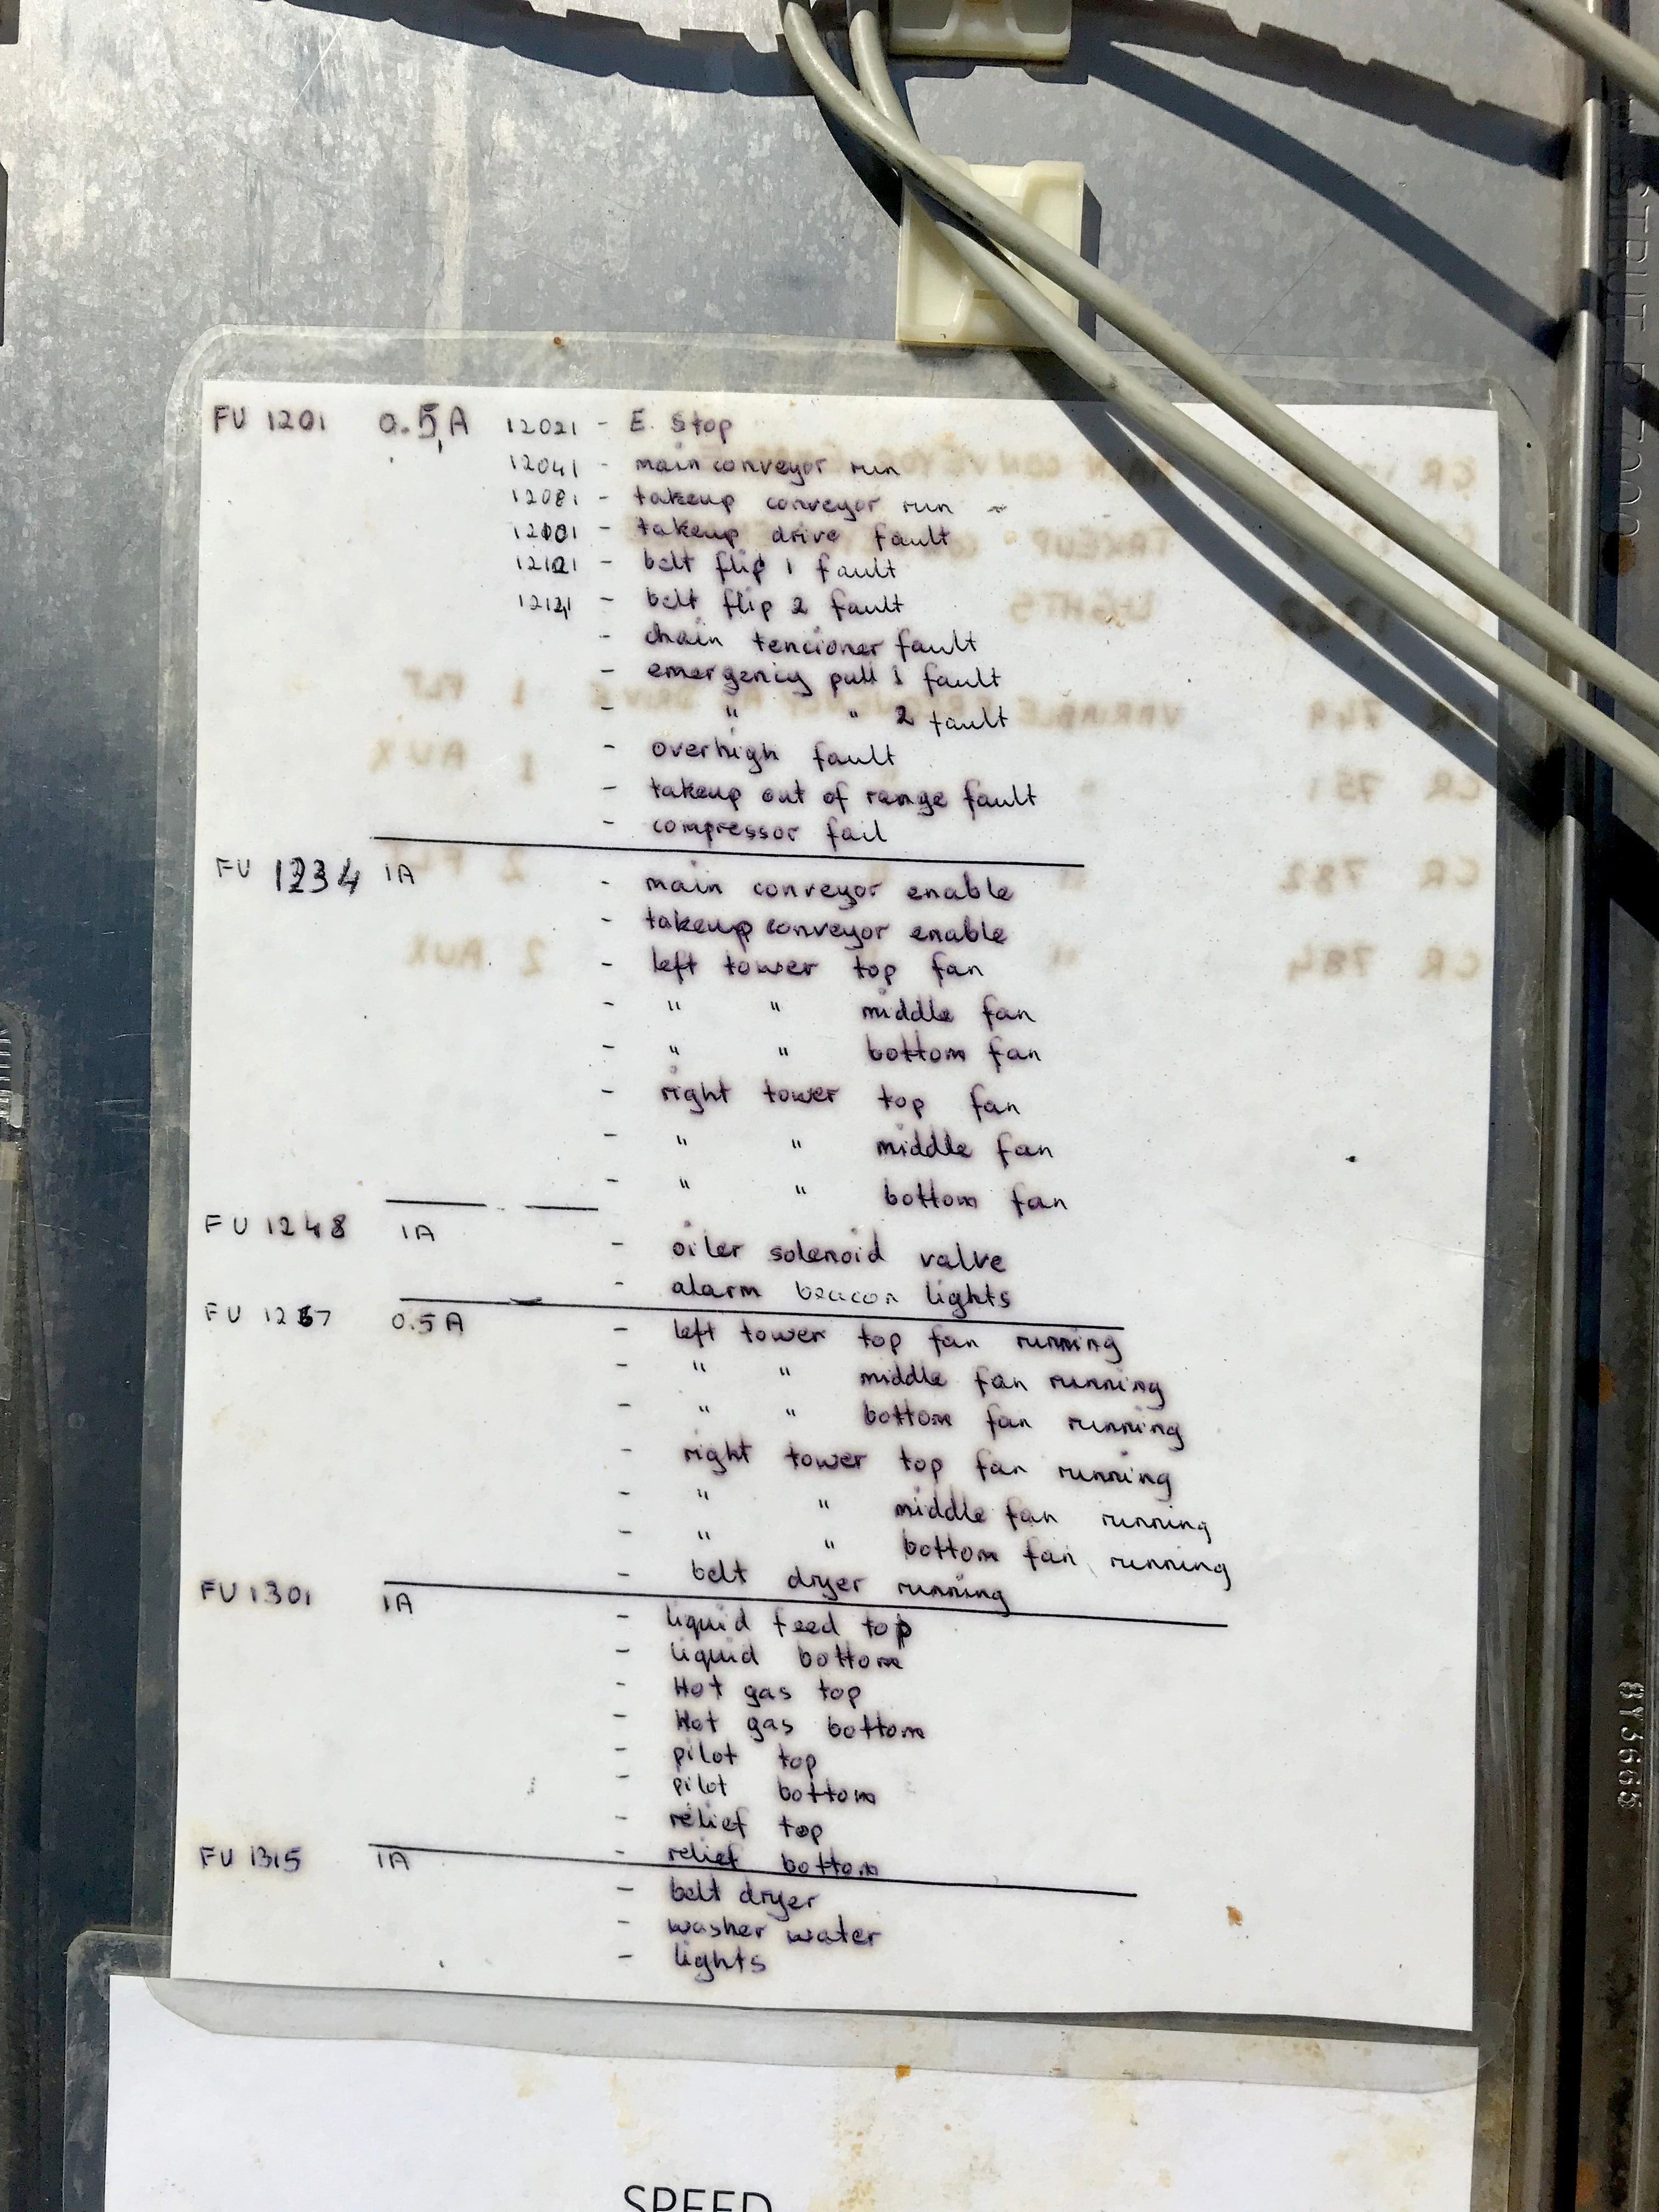 FU 1201 0.5A 12021 - E. Stop
12041 - main conveyor run
12081 - takeup conveyor run
12001 - takeup drive fault
12101 - belt flip 1 fault
12121 - belt flip 2 fault
- chain tencioner fault
- emergenicy pull 1 fault
- " " 2 fault
- overhigh fault
- takeup out of range fault
- compressor fail
FU 1234 1A - main conveyor enable
- takeup conveyor enable
- left tower top fan
- " " middle fan
- " " bottom fan
- right tower top fan
- " " middle fan
- " " bottom fan
FU 1248 1A - oiler solenoid valve
- alarm beacon lights
FU 1267 0.5A - left tower top fan running
- " " middle fan running
- " " bottom fan running
- right tower top fan running
- " " middle fan running
- " " bottom fan running
- belt dryer running
FU 1301 1A - liquid feed top
- liquid bottom
- Hot gas top
- Hot gas bottom
- pilot top
- pilot bottom
- relief top
- relief bottom
FU 1315 1A - belt dryer
- washer water
- lights
SPEED
8Y3665